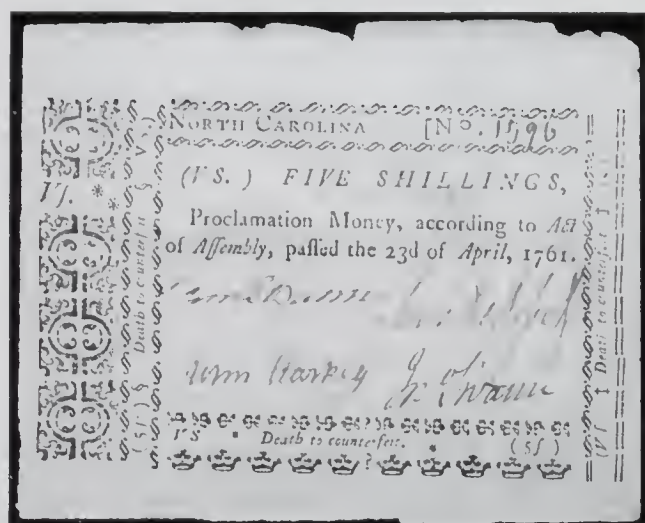 NORTH CAROLINA [No.
(VS.) FIVE SHILLINGS,
Proclamation Money, according to Act
of Assembly, paſſed the 23d of April, 1761.
Starkey Jn Swann
VS Death to counterfeit. (5ſ)
Vſ.
(5ſ) § Death to counterfeit §
Death to counterfeit